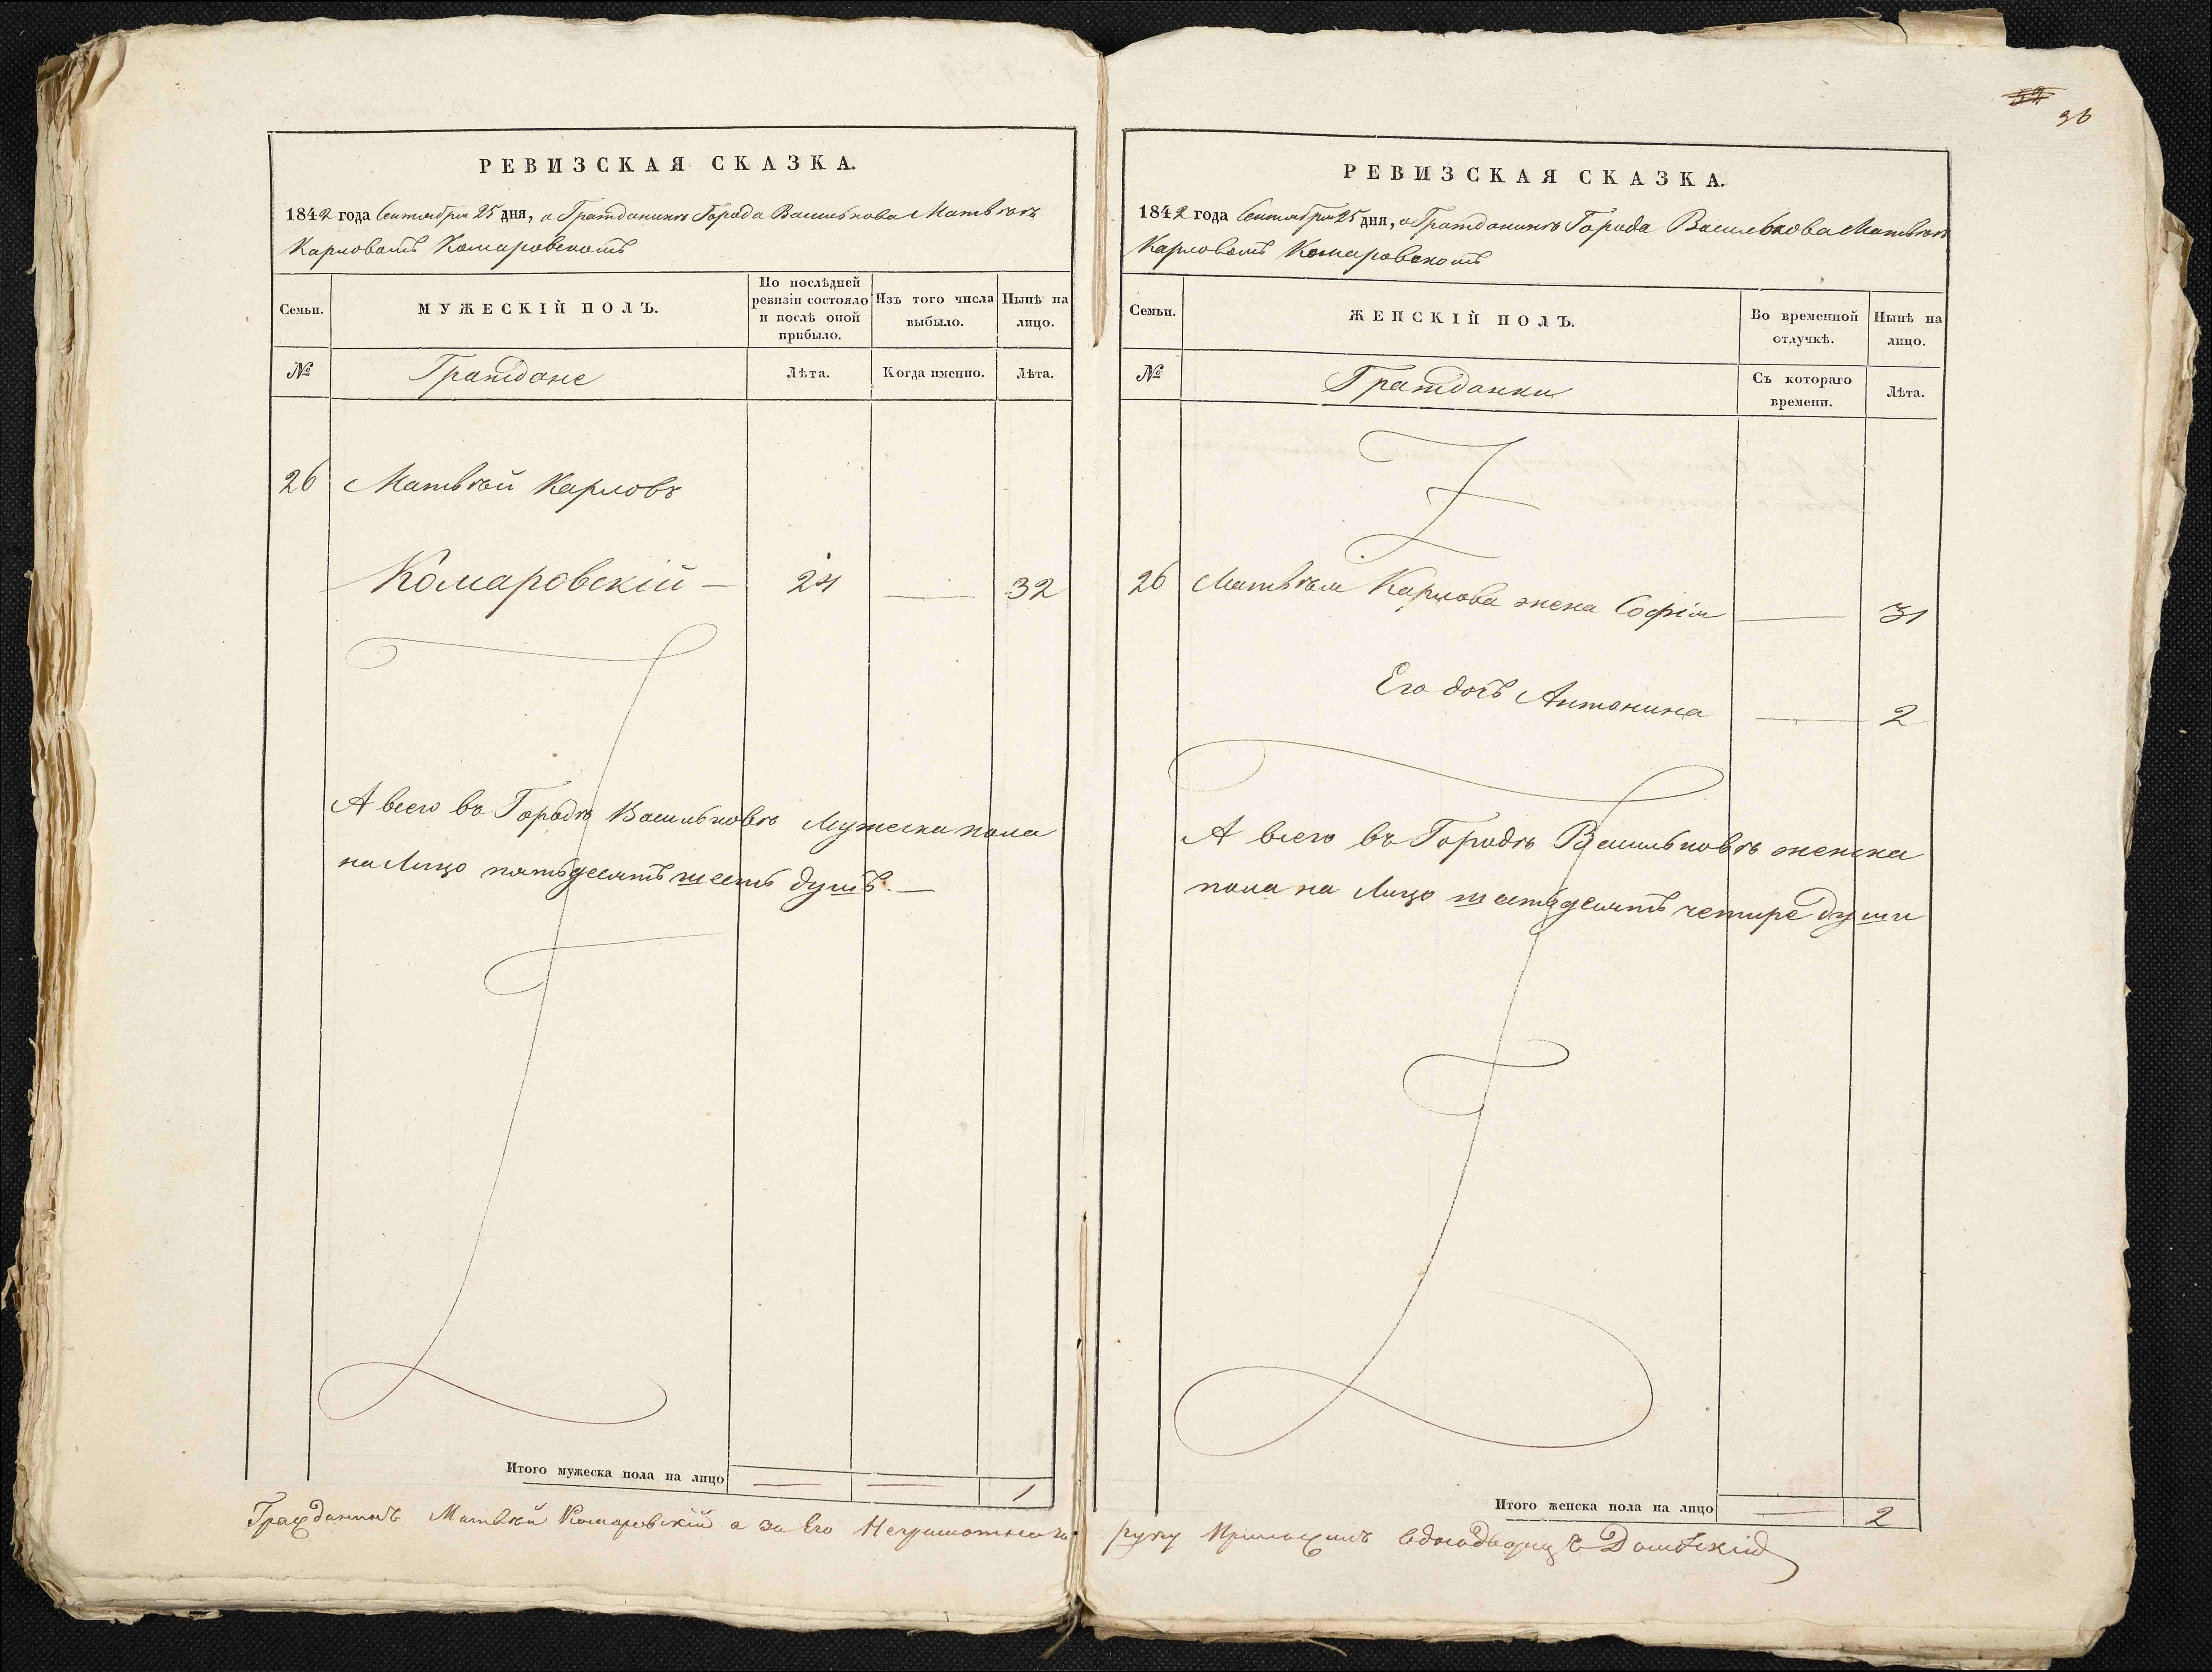 РЕВИЗСКАЯ СКАЗКА.
1842 года Сентября 25 дня, о Гражданинѣ Города Василькова Матвѣѣ
Карловомъ Комаровскомъ
Семьи.
МУЖЕСКІЙ ПОЛЪ.
По послѣдней
ревизіи состояло
и послѣ оной
прибыло.
Изъ того числа
выбыло.
Нынѣ на
лицо.
№
Граждане
Лѣта.
Когда именно.
Лѣта.
26 Матвѣй Карловъ
Комаровскій — 24 — 32
А всего въ Городѣ Васильковѣ Мужеска пола
на Лицо пятьдесятъ шесть душъ. —
Итого мужеска пола на лицо — — 1
Гражданинъ Матвѣй Комаровскій а за Его Неграмотнаго
52
36
РЕВИЗСКАЯ СКАЗКА.
1842 года Сентября 25 дня, о Гражданинѣ Города Василькова Матвѣѣ
Карловомъ Комаровскомъ
Семьи.
ЖЕНСКІЙ ПОЛЪ.
Во временной
отлучкѣ.
Нынѣ на
лицо.
№
Гражданки
Съ котораго
времени.
Лѣта.
26 Матвѣя Карлова жена Софія — 31
Его дочь Антонина — 2
А всего въ Городѣ Васильковѣ женска
пола на Лицо шестьдесятъ четире души
Итого женска пола на лицо — 2
руку Приложилъ Однодворецъ